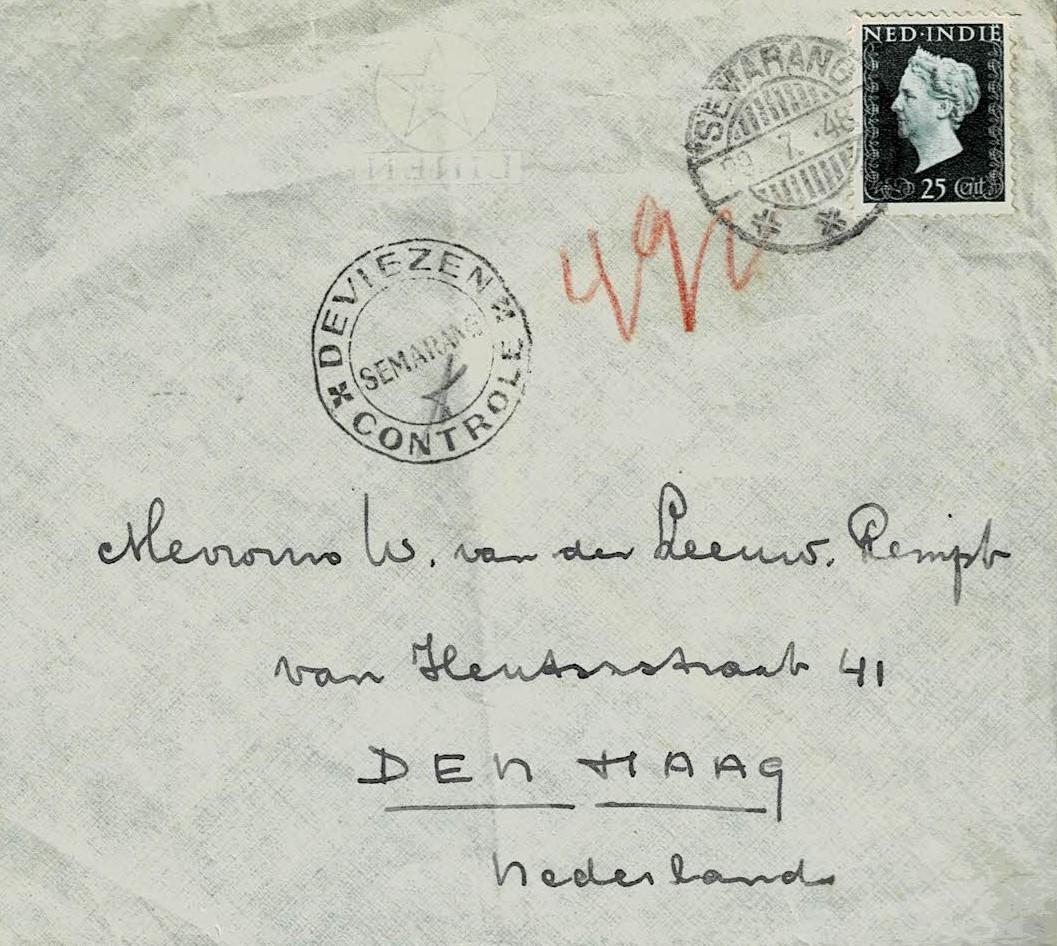 NED·INDIË
25 Cent
SEMARANG
7. 48
DEVIEZEN
SEMARANG
CONTROLE
Mevrouw W. van der Leeuw.
van Heutszstraat 41
DEN HAAG
Nederland